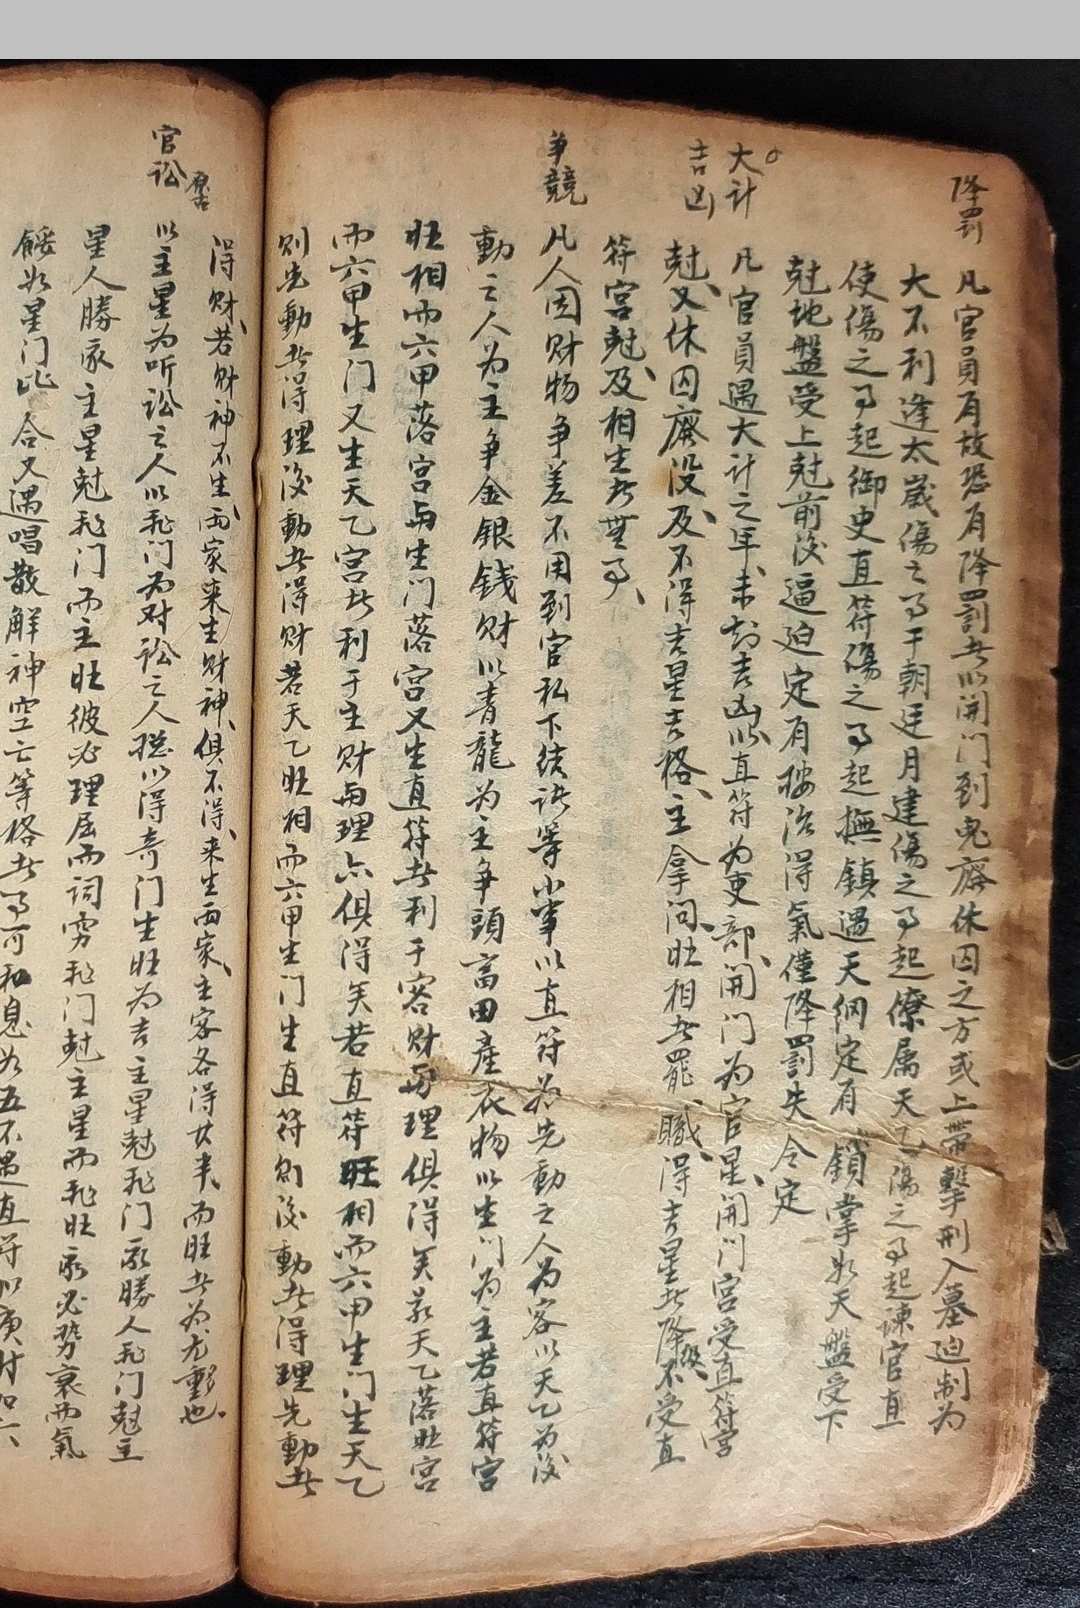 降罰
凡官員有故恐有降罰者以開門到鬼癈休囚之方或上帶擊刑入墓迫制為
大不利逢太歲傷之事干朝廷月建傷之事起僚属天乙傷之事起諫官直
使傷之事起御史直符傷之事起撫鎮遇天網定有鎖掌如天盤受下
尅地盤受上尅前後逼迫定有按治得氣僅降罰失令定
大計
吉凶
凡官員遇大計之年未知吉凶以直符为吏部開門为官星開門宮受直符宮
尅又休囚癈没及不得吉星吉格主拿问旺相者罷職得吉星者降級不受直
符宮尅及相生者無事
争競
凡人因財物争差不用到官私下结訣等小事以直符为先動之人为客以天乙为後
動之人为主争金銀錢財以青龍为主争頭畜田產衣物以生门为主若直符宮
旺相而六甲落宮与生门落宮又生直符者利于客財与理俱得矣若天乙落旺宮
而六甲生门又生天乙宮者利于主財与理亦俱得矣若直符旺相而六甲生门生天乙
则先動者得理後動者得財若天乙旺相而六甲生门生直符则後動者得理先動者
得財若財神不生两家来生財神俱不得来生两家主客各得其半而旺者为尤勝也
官訟
以主星为听訟之人以飛门为对訟之人總以得奇门生旺为吉主星尅飛门我勝人飛门尅主
星人勝我主星尅飛门而主旺彼必理屈而詞穷飛门尅主星而飛旺我必势衰而氣
餒如星门比合又遇唱散解神空亡等格者事可和息如五不遇直符以庚时加六